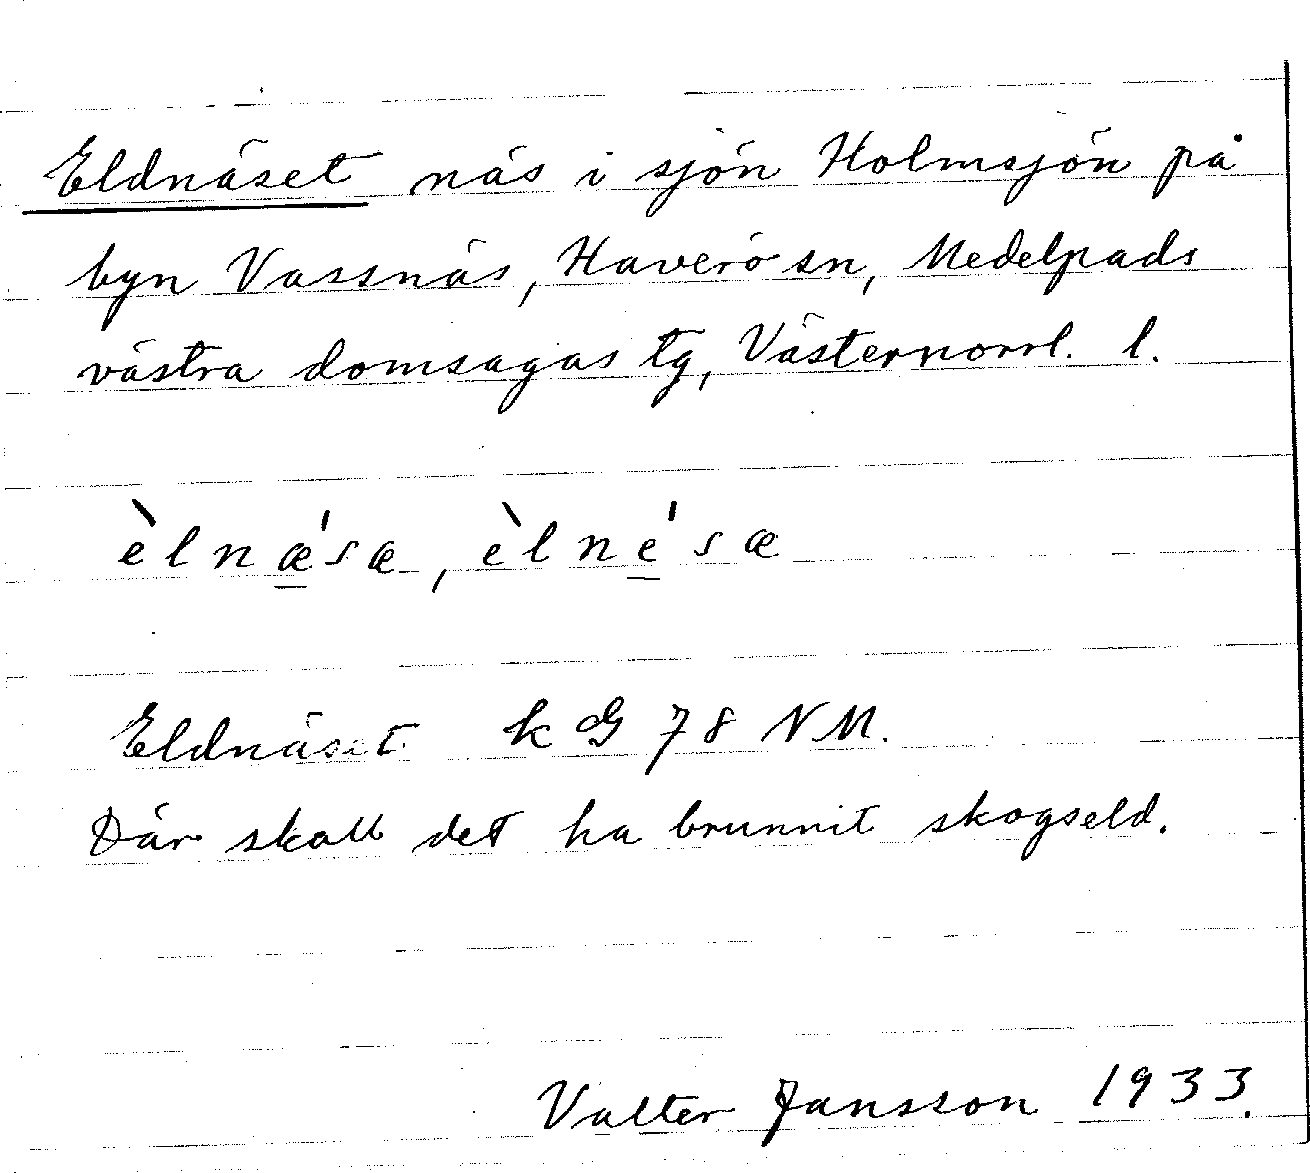 Eldnäset näs i sjön Holmsjön på
byn Vassnäs, Haverö sn, Medelpads
västra domsagas tg, Västernorrl. l.
èlnæ̲'sæ, èlne̲'sæ
Eldnäset k G 78 NM.
Där skall det ha brunnit skogseld.
Valter Jansson 1933.